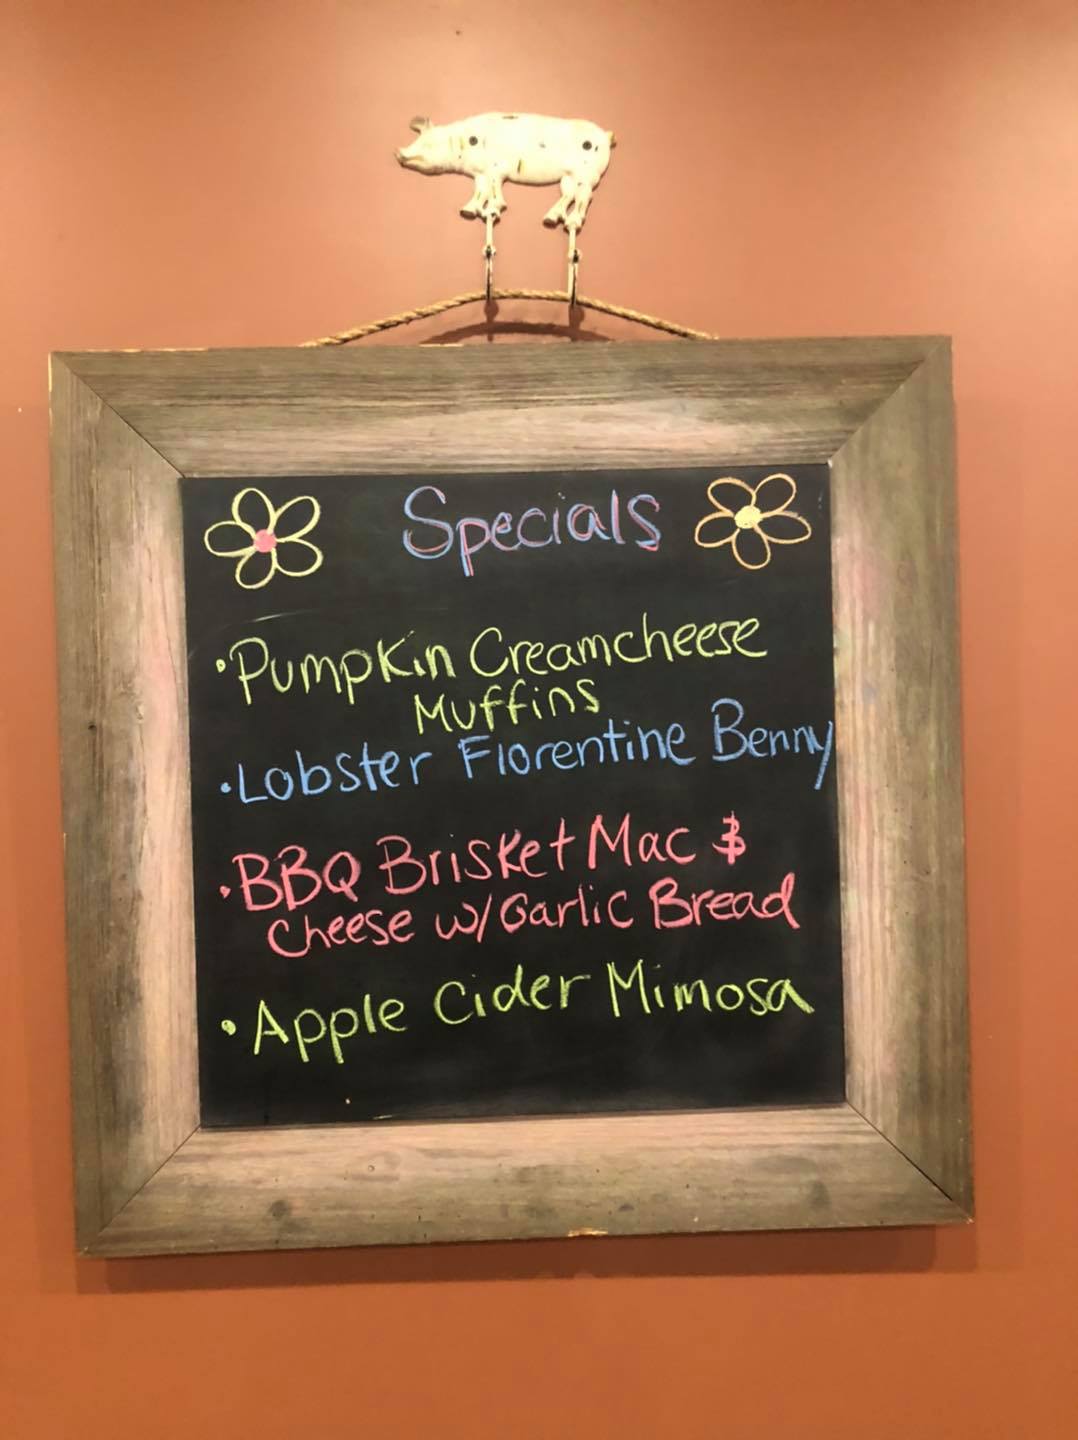 Specials
•Pumpkin Creamcheese
Muffins
•Lobster Florentine Benny
•BBQ Brisket Mac &
Cheese w/Garlic Bread
•Apple Cider Mimosa